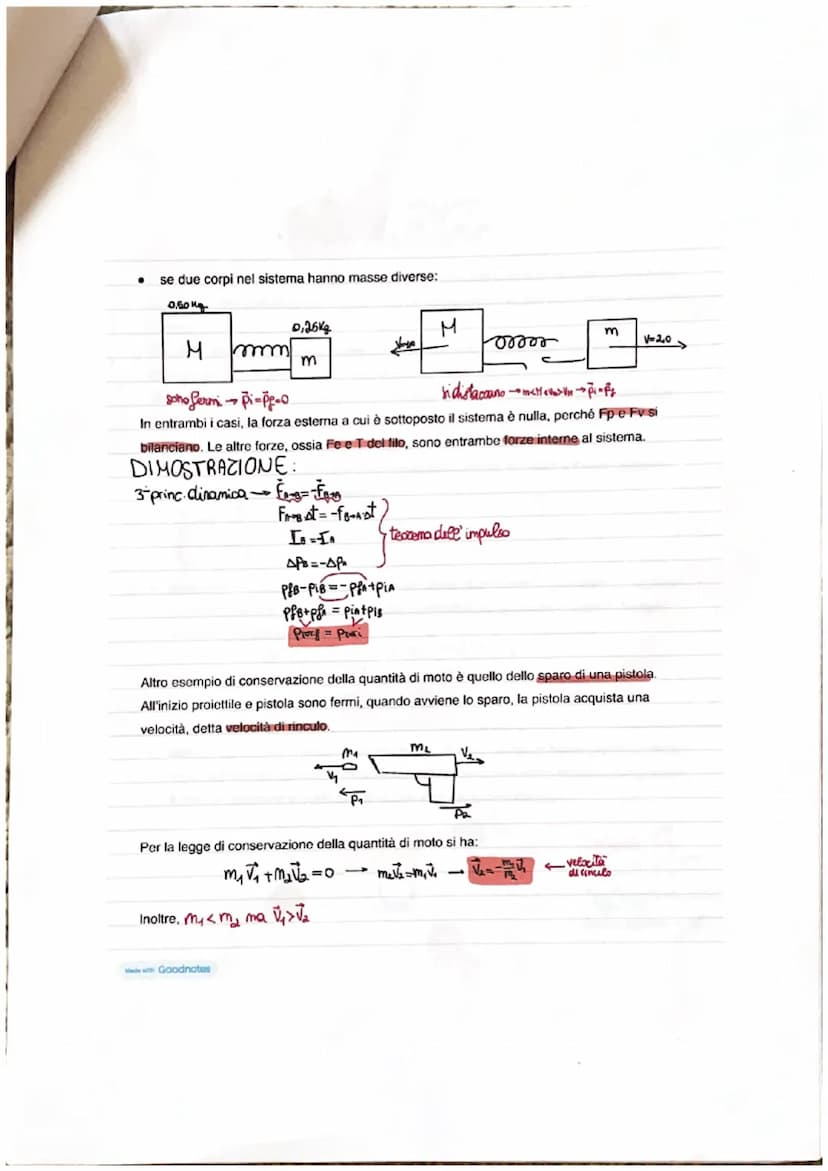 • se due corpi nel sistema hanno masse diverse:
0,50 Kg
0,25Kg
M
m
M
m
V=2,0
sono fermi → p⃗i=p⃗f=0
si distaccano → m<M e vm>vM → p⃗i=p⃗f
In entrambi i casi, la forza esterna a cui è sottoposto il sistema è nulla, perché Fp e Fv si
bilanciano. Le altre forze, ossia Fe e T del filo, sono entrambe forze interne al sistema.
DIMOSTRAZIONE:
3° princ. dinamica → F⃗A→B=-F⃗B→A
FA→B Δt = -fB→A Δt
IB=-IA
teorema dell'impulso
ΔpB=-ΔpA
pfB-piB=-pfA+piA
pfB+pfA = piA+piB
ptotf = ptoti
Altro esempio di conservazione della quantità di moto è quello dello sparo di una pistola.
All'inizio proiettile e pistola sono fermi, quando avviene lo sparo, la pistola acquista una
velocità, detta velocità di rinculo.
m1
m2
V2
V1
P1
P2
Per la legge di conservazione della quantità di moto si ha:
m1V⃗1+m2V⃗2=0 → m2V⃗2=m1V⃗1 → V⃗2=-m1/m2 V⃗1 ← velocità di rinculo
Inoltre, m1<m2 ma V⃗1>V⃗2
Made with Goodnotes